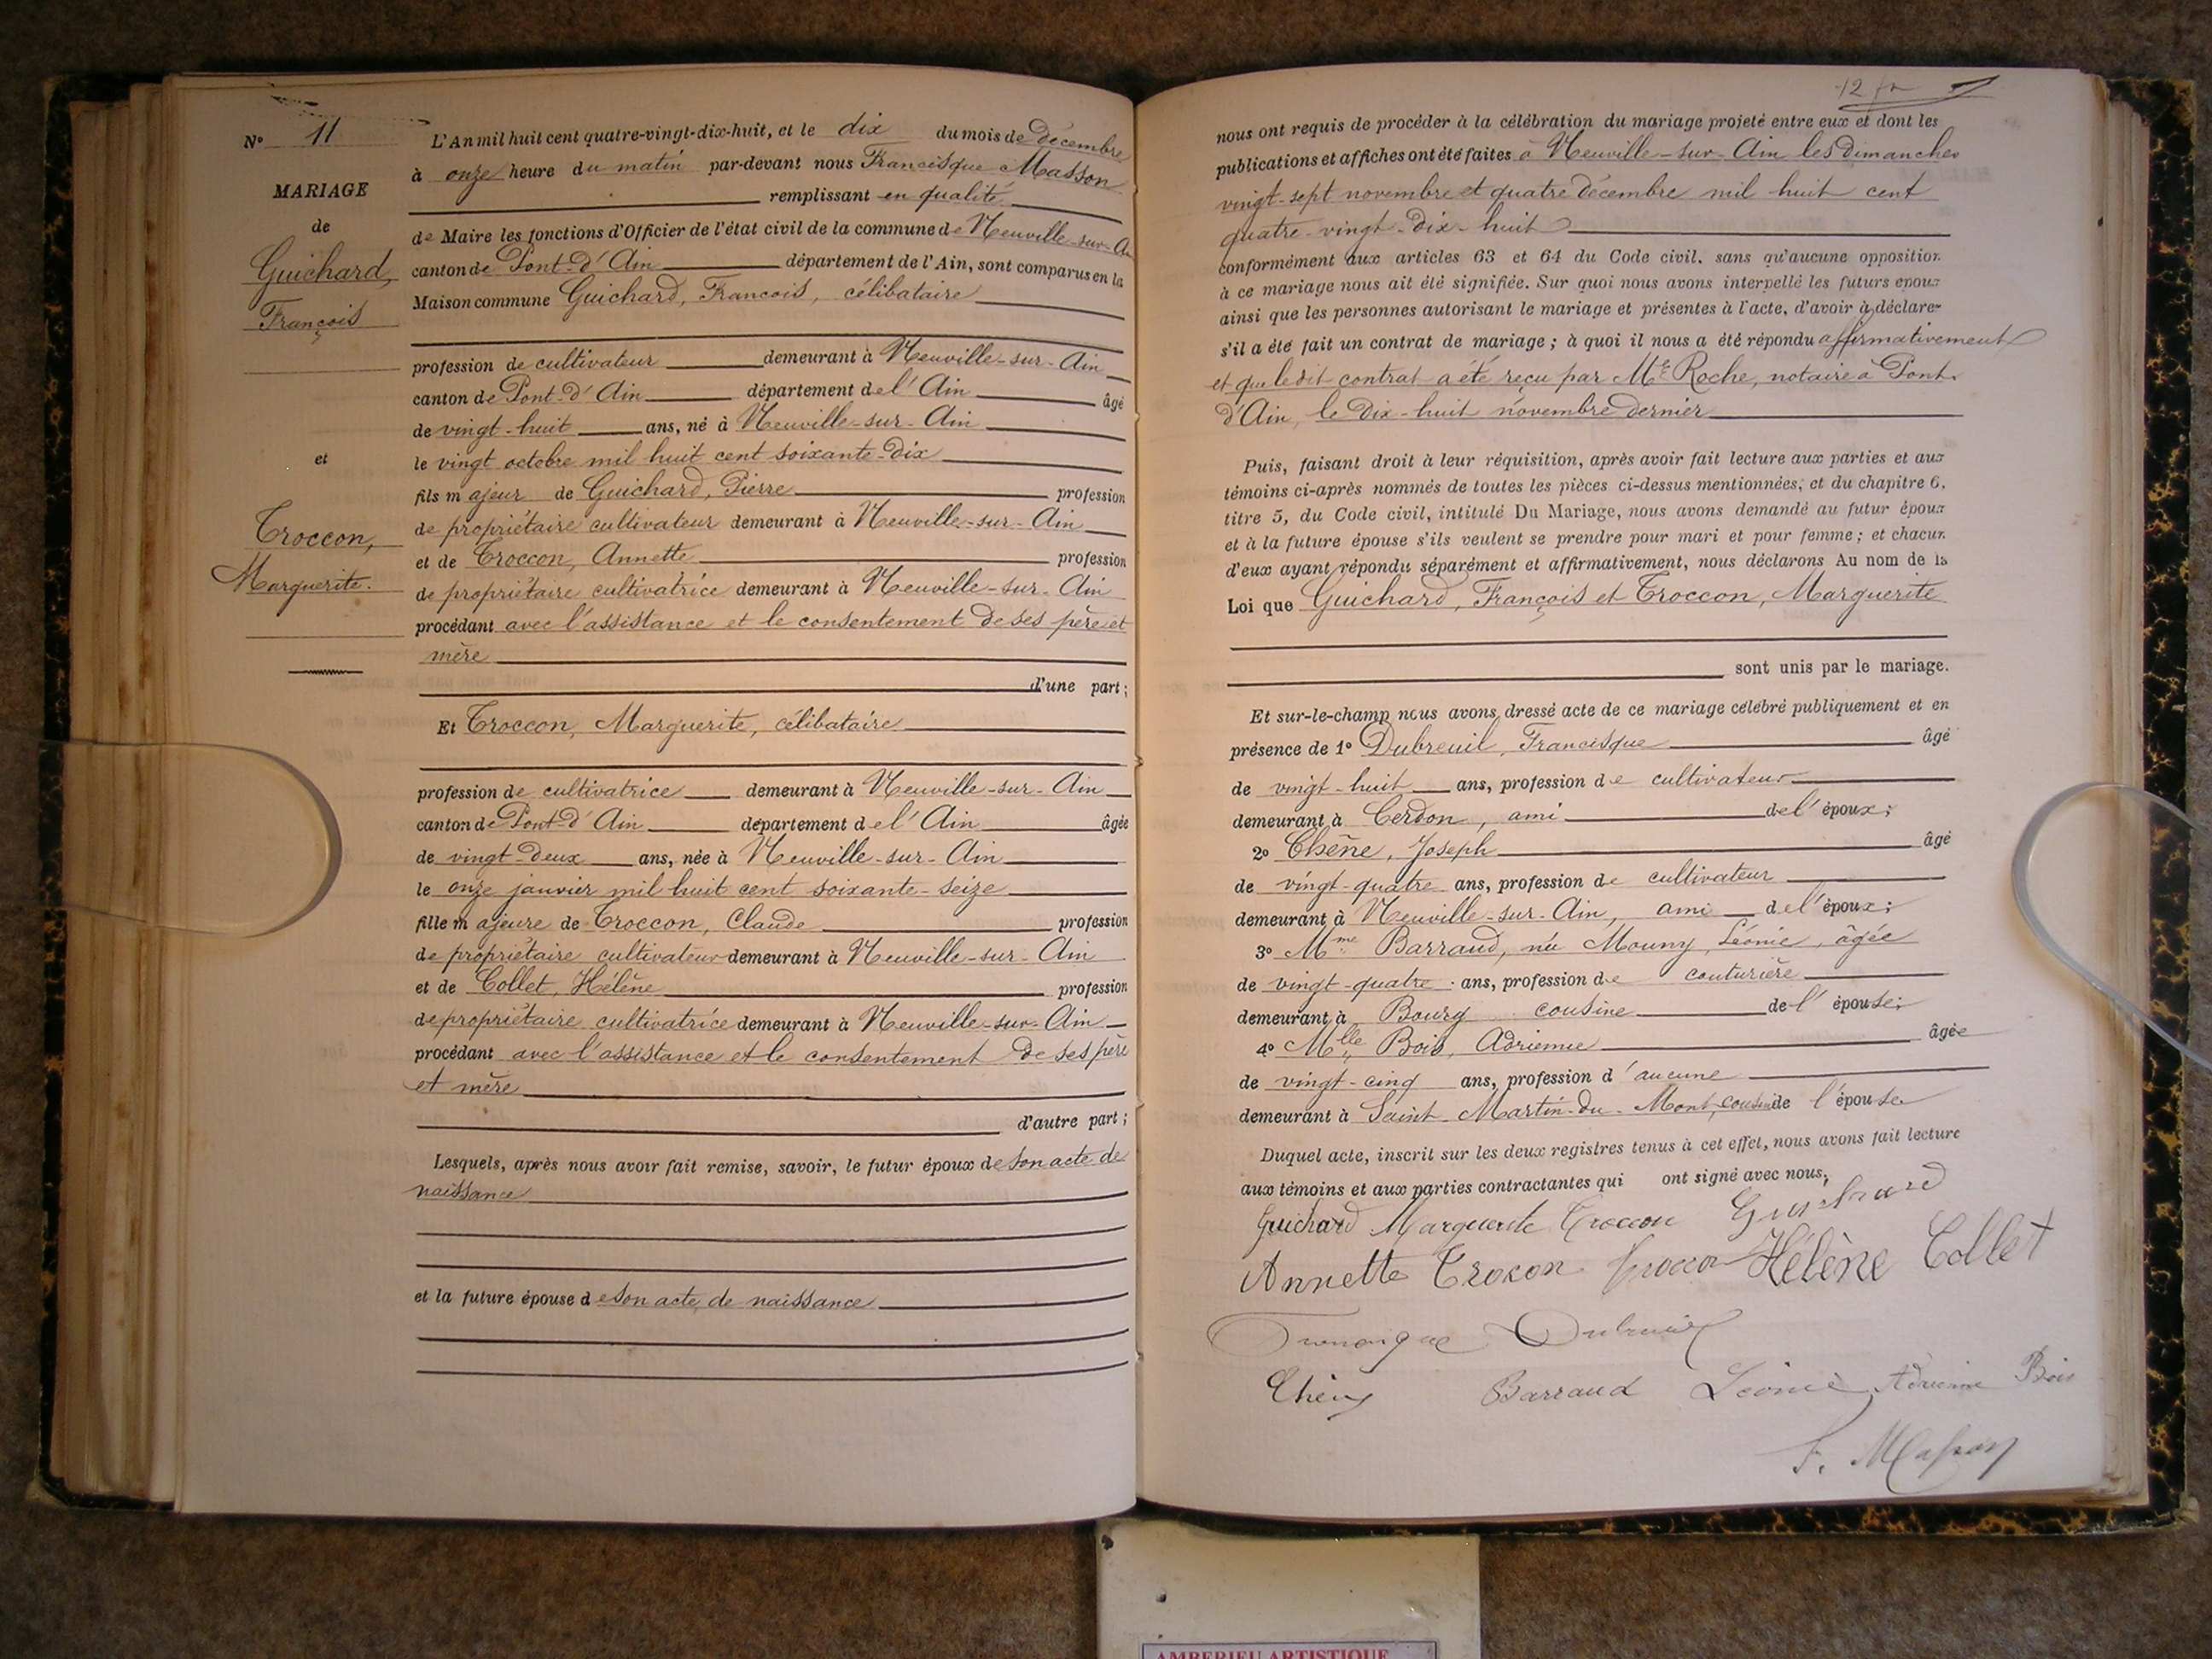 N° 11
MARIAGE
de
Guichard,
François
et
Troccon,
Marguerite.
L'An mil huit cent quatre-vingt-dix-huit, et le dix du mois de Décembre
à onze heure du matin par-devant nous Francisque Masson
remplissant en qualité
de Maire les fonctions d'Officier de l'état civil de la commune de Neuville-sur-A
canton de Pont-d'Ain département de l'Ain, sont comparus en la
Maison commune Guichard, François, célibataire
profession de cultivateur demeurant à Neuville-sur-Ain
canton de Pont-d'Ain département de l'Ain âgé
de vingt-huit ans, né à Neuville-sur-Ain
le vingt octobre mil huit cent soixante-dix
fils majeur de Guichard, Pierre profession
de propriétaire cultivateur demeurant à Neuville-sur-Ain
et de Troccon, Annette profession
de propriétaire cultivatrice demeurant à Neuville-sur-Ain
procédant avec l'assistance et le consentement de ses père et
mère
d'une part;
Et Troccon, Marguerite, célibataire
profession de cultivatrice demeurant à Neuville-sur-Ain
canton de Pont-d'Ain département de l'Ain âgée
de vingt-deux ans, née à Neuville-sur-Ain
le onze janvier mil huit cent soixante-seize
fille majeure de Troccon, Claude profession
de propriétaire cultivateur demeurant à Neuville-sur-Ain
et de Collet, Hélène profession
de propriétaire cultivatrice demeurant à Neuville-sur-Ain
procédant avec l'assistance et le consentement de ses père
et mère
d'autre part;
Lesquels, après nous avoir fait remise, savoir, le futur époux de son acte de
naissance
et la future épouse de son acte de naissance
12
nous ont requis de procéder à la célébration du mariage projeté entre eux et dont les
publications et affiches ont été faites à Neuville-sur-Ain les dimanches
vingt-sept novembre et quatre décembre mil huit cent
quatre-vingt-dix-huit
conformément aux articles 63 et 64 du Code civil, sans qu'aucune opposition
à ce mariage nous ait été signifiée. Sur quoi nous avons interpellé les futurs époux
ainsi que les personnes autorisant le mariage et présentes à l'acte, d'avoir à déclarer
s'il a été fait un contrat de mariage; à quoi il nous a été répondu affirmativement
et que le dit contrat a été reçu par Me Roche, notaire à Pont-
d'Ain, le dix-huit novembre dernier
Puis, faisant droit à leur réquisition, après avoir fait lecture aux parties et aux
témoins ci-après nommés de toutes les pièces ci-dessus mentionnées, et du chapitre 6,
titre 5, du Code civil, intitulé Du Mariage, nous avons demandé au futur époux
et à la future épouse s'ils veulent se prendre pour mari et pour femme; et chacun
d'eux ayant répondu séparément et affirmativement, nous déclarons Au nom de la
Loi que Guichard, François et Troccon, Marguerite
sont unis par le mariage.
Et sur-le-champ nous avons dressé acte de ce mariage célébré publiquement et en
présence de 1° Dubreuil, Francisque âgé
de vingt-huit ans, profession de cultivateur
demeurant à Cerdon, ami de l'époux;
2° Chêne, Joseph âgé
de vingt-quatre ans, profession de cultivateur
demeurant à Neuville-sur-Ain, ami de l'époux;
3° Mme Barraud, née Mouny, Léonie, âgée
de vingt-quatre ans, profession de couturière
demeurant à Bourg cousine de l'épouse;
4° Mlle Bois, Adrienne âgée
de vingt-cinq ans, profession d'aucune
demeurant à Saint-Martin-du-Mont, cousine de l'épouse
Duquel acte, inscrit sur les deux registres tenus à cet effet, nous avons fait lecture
aux témoins et aux parties contractantes qui ont signé avec nous,
Guichard Marguerite Troccon Guichard
Annette Trocon Troccon Hélène Collet
Francisque Dubreuil
Chêne Barraud Léonie Adrienne Bois
F. Masson
AMBERIEU ARTISTIQUE